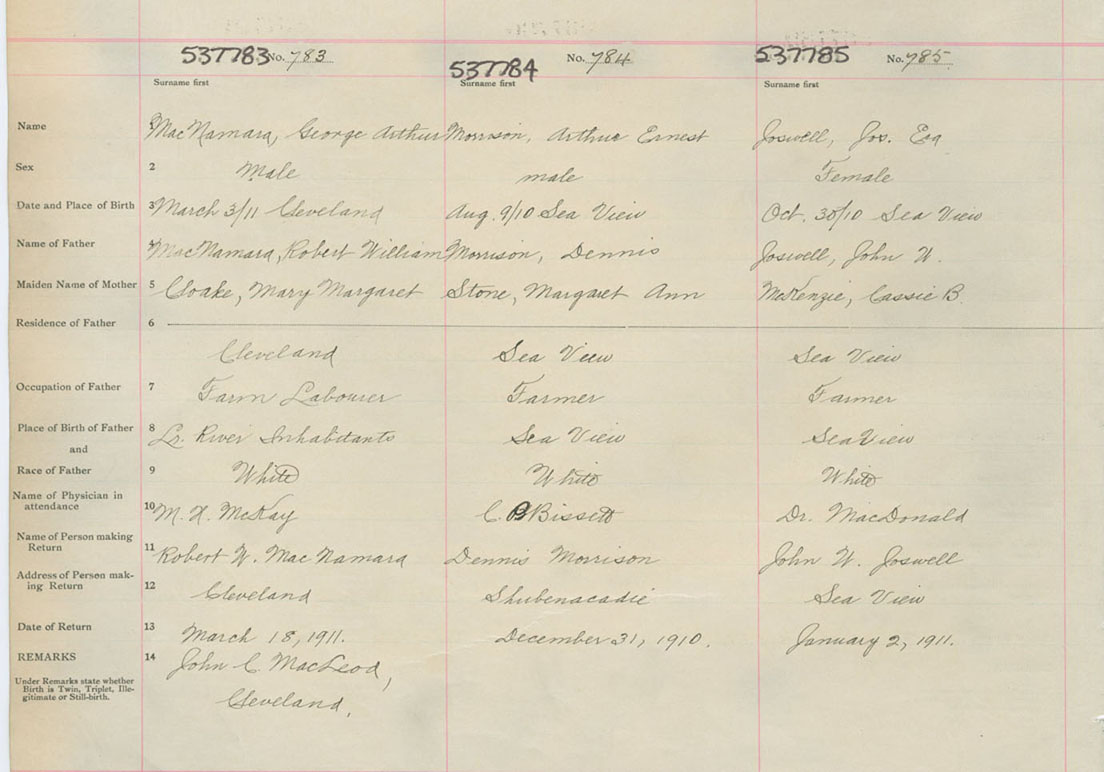 537783 No. 783 537784 No. 784 537785 No. 785
Surname first Surname first Surname first
Name 1 MacNamara, George Arthur Morrison, Arthur Ernest Joswell, Jos. Esq
Sex 2 Male male Female
Date and Place of Birth 3 March 3/11 Cleveland Aug. 9/10 Sea View Oct. 30/10 Sea View
Name of Father 4 MacNamara, Robert William Morrison, Dennis Joswell, John W.
Maiden Name of Mother 5 Cloake, Mary Margaret Stone, Margaret Ann McKenzie, Cassie B.
Residence of Father 6
Cleveland Sea View Sea View
Occupation of Father 7 Farm Labourer Farmer Farmer
Place of Birth of Father 8 Lr. River Inhabitants Sea View Sea View
and
Race of Father 9 White White White
Name of Physician in
attendance 10 M. McKay C. P Bissett Dr. MacDonald
Name of Person making
Return 11 Robert W. MacNamara Dennis Morrison John W. Joswell
Address of Person mak-
ing Return 12 Cleveland Shubenacadie Sea View
Date of Return 13 March 18, 1911. December 31, 1910. January 2, 1911.
REMARKS 14 John C. MacLeod,
Under Remarks state whether
Birth is Twin, Triplet, Ille-
gitimate or Still-birth.
Cleveland,